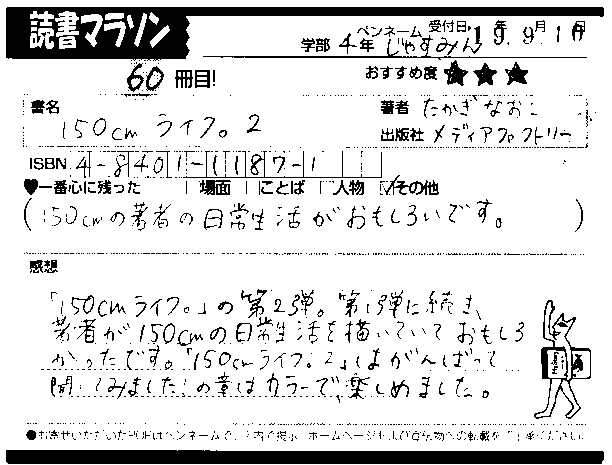 読書マラソン
学部 4年 ペンネーム じゃすみん 受付日 19年9月1日
60冊目! おすすめ度 ★★★
書名 150cmライフ。2
著者 たかぎなおこ
出版社 メディアファクトリー
ISBN 4-8401-1187-1
♥一番心に残った 場面 ことば 人物 その他
(150cmの著者の日常生活がおもしろいです。)
感想
「150cmライフ。」の第2弾。第1弾に続き、
著者が150cmの日常生活を描いていておもしろ
かったです。「150cmライフ。2」はがんばって
聞いてみました!の章はカラーで、楽しめました。